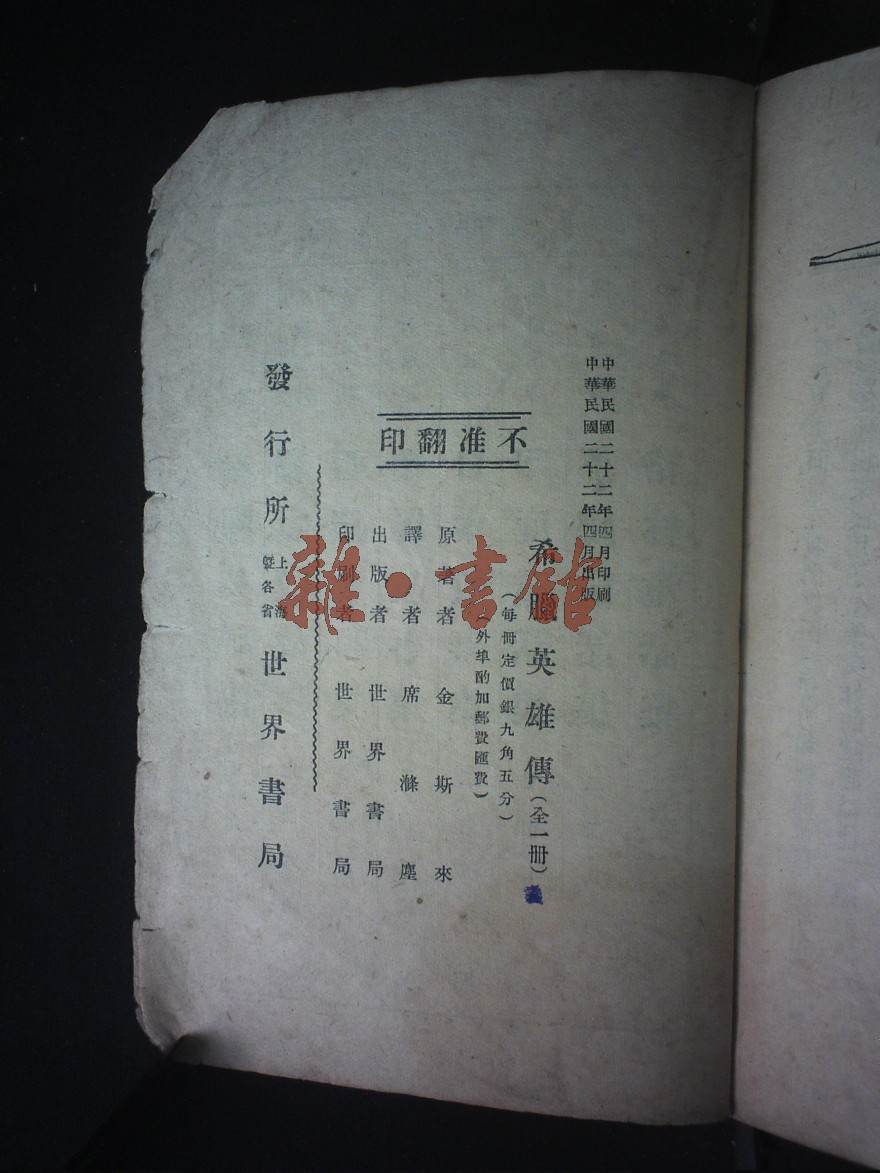 中華民國二十二年四月印刷
中華民國二十二年四月出版
希臘英雄傳(全一冊)
(每冊定價銀九角五分)
(外埠酌加郵費匯費)
不准翻印
原著者 金斯來
譯者 席滌塵
出版者 世界書局
印刷者 世界書局
發行所 上海暨各省 世界書局
雜·書館